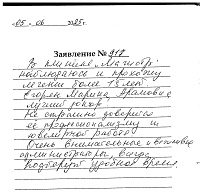 «05» 06 2025г.
Заявление № 918
В клинике „Магистр"
наблюдаюсь и прохожу
лечение более 15 лет!
Егорян Марина Араловна
лучший доктор!
Не страшно доверится
её профессионализму и
ювелирной работе
Очень внимательные и вежливые
администраторы, всегда
подберут удобное время